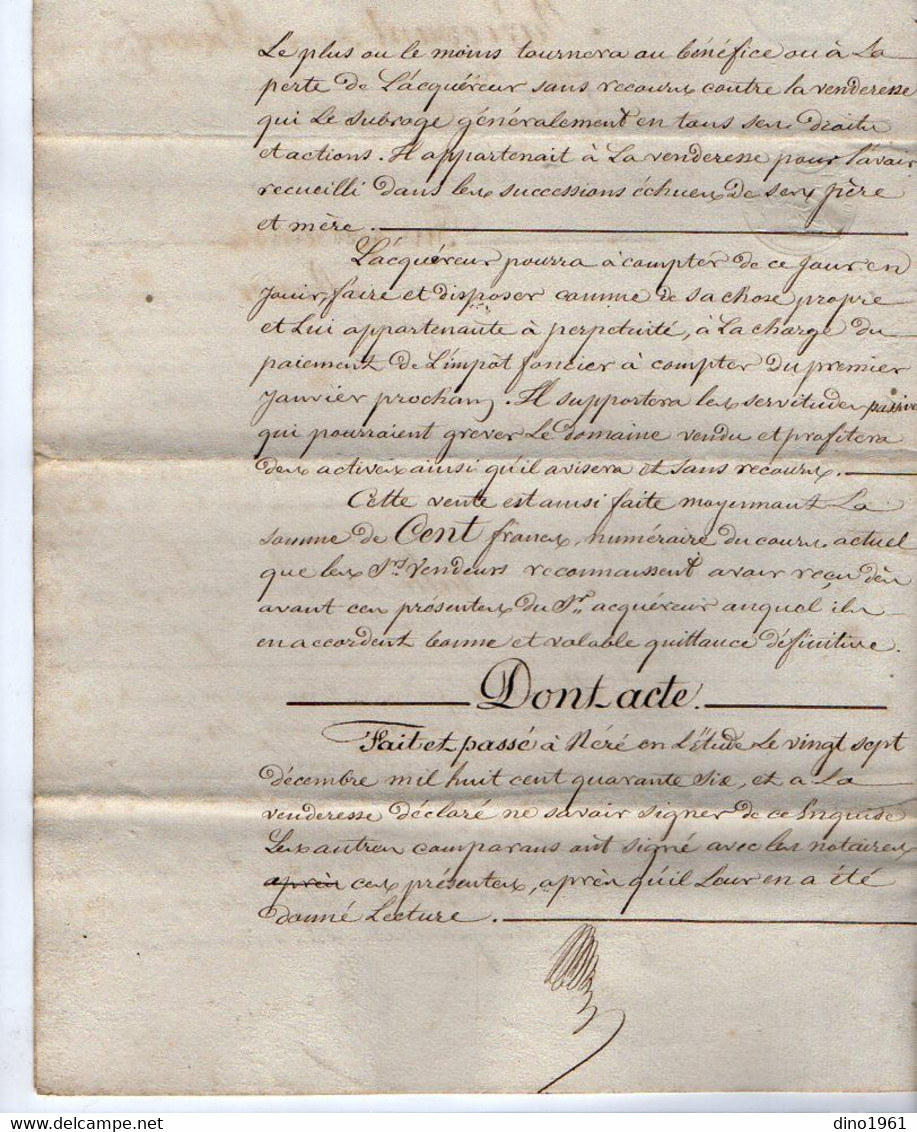 Le plus ou le moins tournera au bénéfice ou à La
perte de L'acquéreur sans recours contre la venderesse
qui Le subroge généralement en tous ses droits
et actions. Il appartenait à La venderesse pour l'avoir
recueilli dans les successions échues de ses père
et mère.
L'acquéreur pourra à compter de ce jour en
jouir, faire et disposer comme de sa chose propre
et Lui appartenante à perpetuité, à La charge du
paiement de L'impôt foncier à compter du premier
Janvier prochain. Il supportera les servitudes passives
qui pourraient grever Le domaine vendu et profitera
des actives ainsi qu'il avisera et sans recours.
Cette vente est ainsi faite moyennant La
somme de Cent francs, numéraire du cours actuel
que les Srs Vendeurs reconnaissent avoir reçu dès
avant ces présentes du Sr acquéreur auquel ils
en accordent bonne et valable quittance définitive.
Dont acte.
Fait et passé à Néré en L'Etude Le vingt sept
décembre mil huit cent quarante six, et a La
venderesse déclaré ne savoir signer de ce Enquise
Les autres comparans ont signé avec les notaires
après ces présentes, après qu'il Leur en a été
donné Lecture.
dino1961